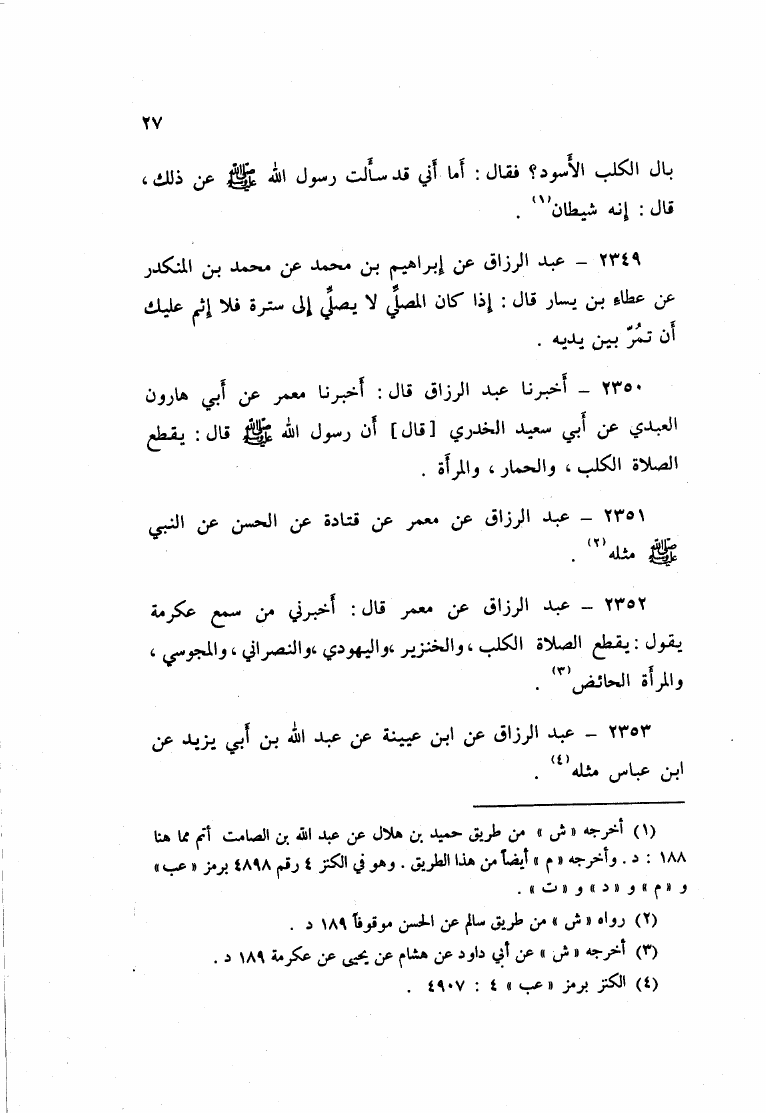 ٢٧
بال الكلب الأسود؟ فقال : أما أني قد سألت رسول الله ﷺ عن ذلك ،
قال : إنه شيطان(١) .
٢٣٤٩ – عبد الرزاق عن إبراهيم بن محمد عن محمد بن المنكدر
عن عطاء بن يسار قال : إذا كان المصلِّي لا يصلِّي إلى سترة فلا إثم عليك
أن تمُرّ بين يديه .
٢٣٥٠ – أخبرنا عبد الرزاق قال : أخبرنا معمر عن أبي هارون
العبدي عن أبي سعيد الخدري [قال] أن رسول الله ﷺ قال : يقطع
الصلاة الكلب ، والحمار ، والمرأة .
٢٣٥١ – عبد الرزاق عن معمر عن قتادة عن الحسن عن النبي
ﷺ مثله(٢) .
٢٣٥٢ – عبد الرزاق عن معمر قال : أخبرني من سمع عكرمة
يقول : يقطع الصلاة الكلب ، والخنزير ،واليهودي ،والنصراني ، والمجوسي ،
والمرأة الحائض(٣) .
٢٣٥٣ – عبد الرزاق عن ابن عيينة عن عبد الله بن أبي يزيد عن
ابن عباس مثله(٤) .
(١) أخرجه « ش » من طريق حميد بن هلال عن عبد الله بن الصامت أتم مما هنا
١٨٨ : د . وأخرجه « م » أيضاً من هذا الطريق . وهو في الكنز ٤ رقم ٤٨٩٨ برمز « عب »
و « م » و « د » و « ت » .
(٢) رواه « ش » من طريق سالم عن الحسن موقوفاً ١٨٩ د .
(٣) أخرجه « ش » عن أبي داود عن هشام عن يحيى عن عكرمة ١٨٩ د .
(٤) الكنز برمز « عب » ٤ : ٤٩٠٧ .